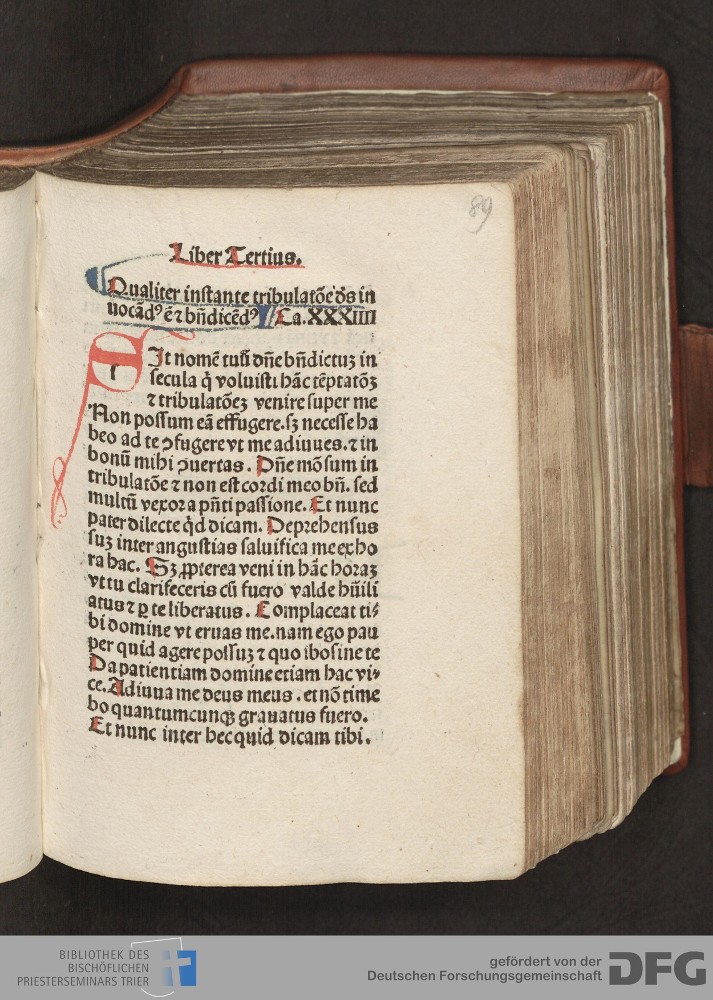 89
Liber Tertius.
Qualiter instante tribulatõe d̃s in
uocãdꝰ ẽ ⁊ bñdicẽdꝰ Ca. XXXIIII
SIt nomẽ tuũ dñe bñdictuꝫ in
secula q̇ voluisti hãc tẽptatõꝫ
⁊ tribulatõeꝫ venire super me
Non possum eã effugere. sꝫ necesse ha
beo ad te ꝯfugere vt me adiuues. ⁊ in
bonũ mihi ꝯuertas. Dñe mõ sum in
tribulatõe ⁊ non est cordi meo bñ. sed
multũ vexor a pñti passione. Et nunc
pater dilecte q̇d dicam. Deprehensus
suꝫ inter angustias saluifica me ex ho
ra hac. Sꝫ ꝓpterea veni in hãc horaꝫ
vt tu clarifeceris cũ fuero valde hũili
atus ⁊ ꝑ te liberatus. Complaceat ti⸗
bi domine vt eruas me. nam ego pau
per quid agere possuꝫ ⁊ quo ibo sine te
Da patientiam domine etiam hac vi⸗
ce. Adiuua me deus meus. et nõ time
bo quantumcunqꝫ grauatus fuero.
Et nunc inter hec quid dicam tibi.
BIBLIOTHEK DES
BISCHÖFLICHEN
PRIESTERSEMINARS TRIER
gefördert von der
Deutschen Forschungsgemeinschaft
DFG